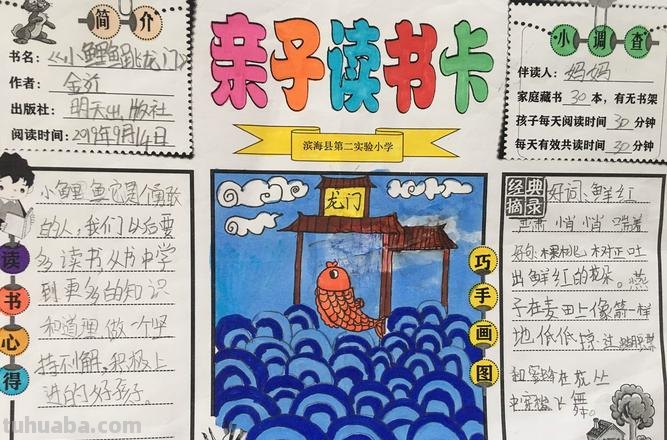 简介
书名:《小鲤鱼跳龙门》
作者:金近
出版社:明天出版社
阅读时间:2019年9月14日
亲子读书卡
滨海县第二实验小学
小调查
伴读人:妈妈
家庭藏书30本,有无书架
孩子每天阅读时间30分钟
每天有效共读时间30分钟
读书心得
小鲤鱼它是个勇敢
的人,我们以后要
多读书,从书中学
到更多的知识
和道理做一个坚
持不懈,积极上
进的好孩子。
龙门
巧手画图
经典
摘录
好词:鲜红
悄悄
好句:棵桃对正吐
出鲜红的花朵。燕
子在麦田上像箭一样
地低低掠过
在花丛
舞。
tuhuaba.com